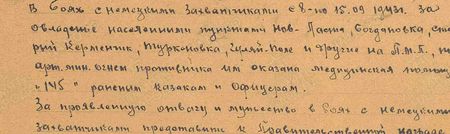 В боях с немецкими захватчиками с 8-го 15.09 1943г. за
овладение населенными пунктами Нов- Ласпа, Богдановка, Ста-
рый Керменчик, Турконовка, Гуляй-Поле и другие на П.М.П., под
арт. мин. огнем противника им оказана медицинская помощь
„145" раненым казакам и офицерам.
За проявленную отвагу и мужество в боях с немецкими
захватчиками представить к Правительственной награде